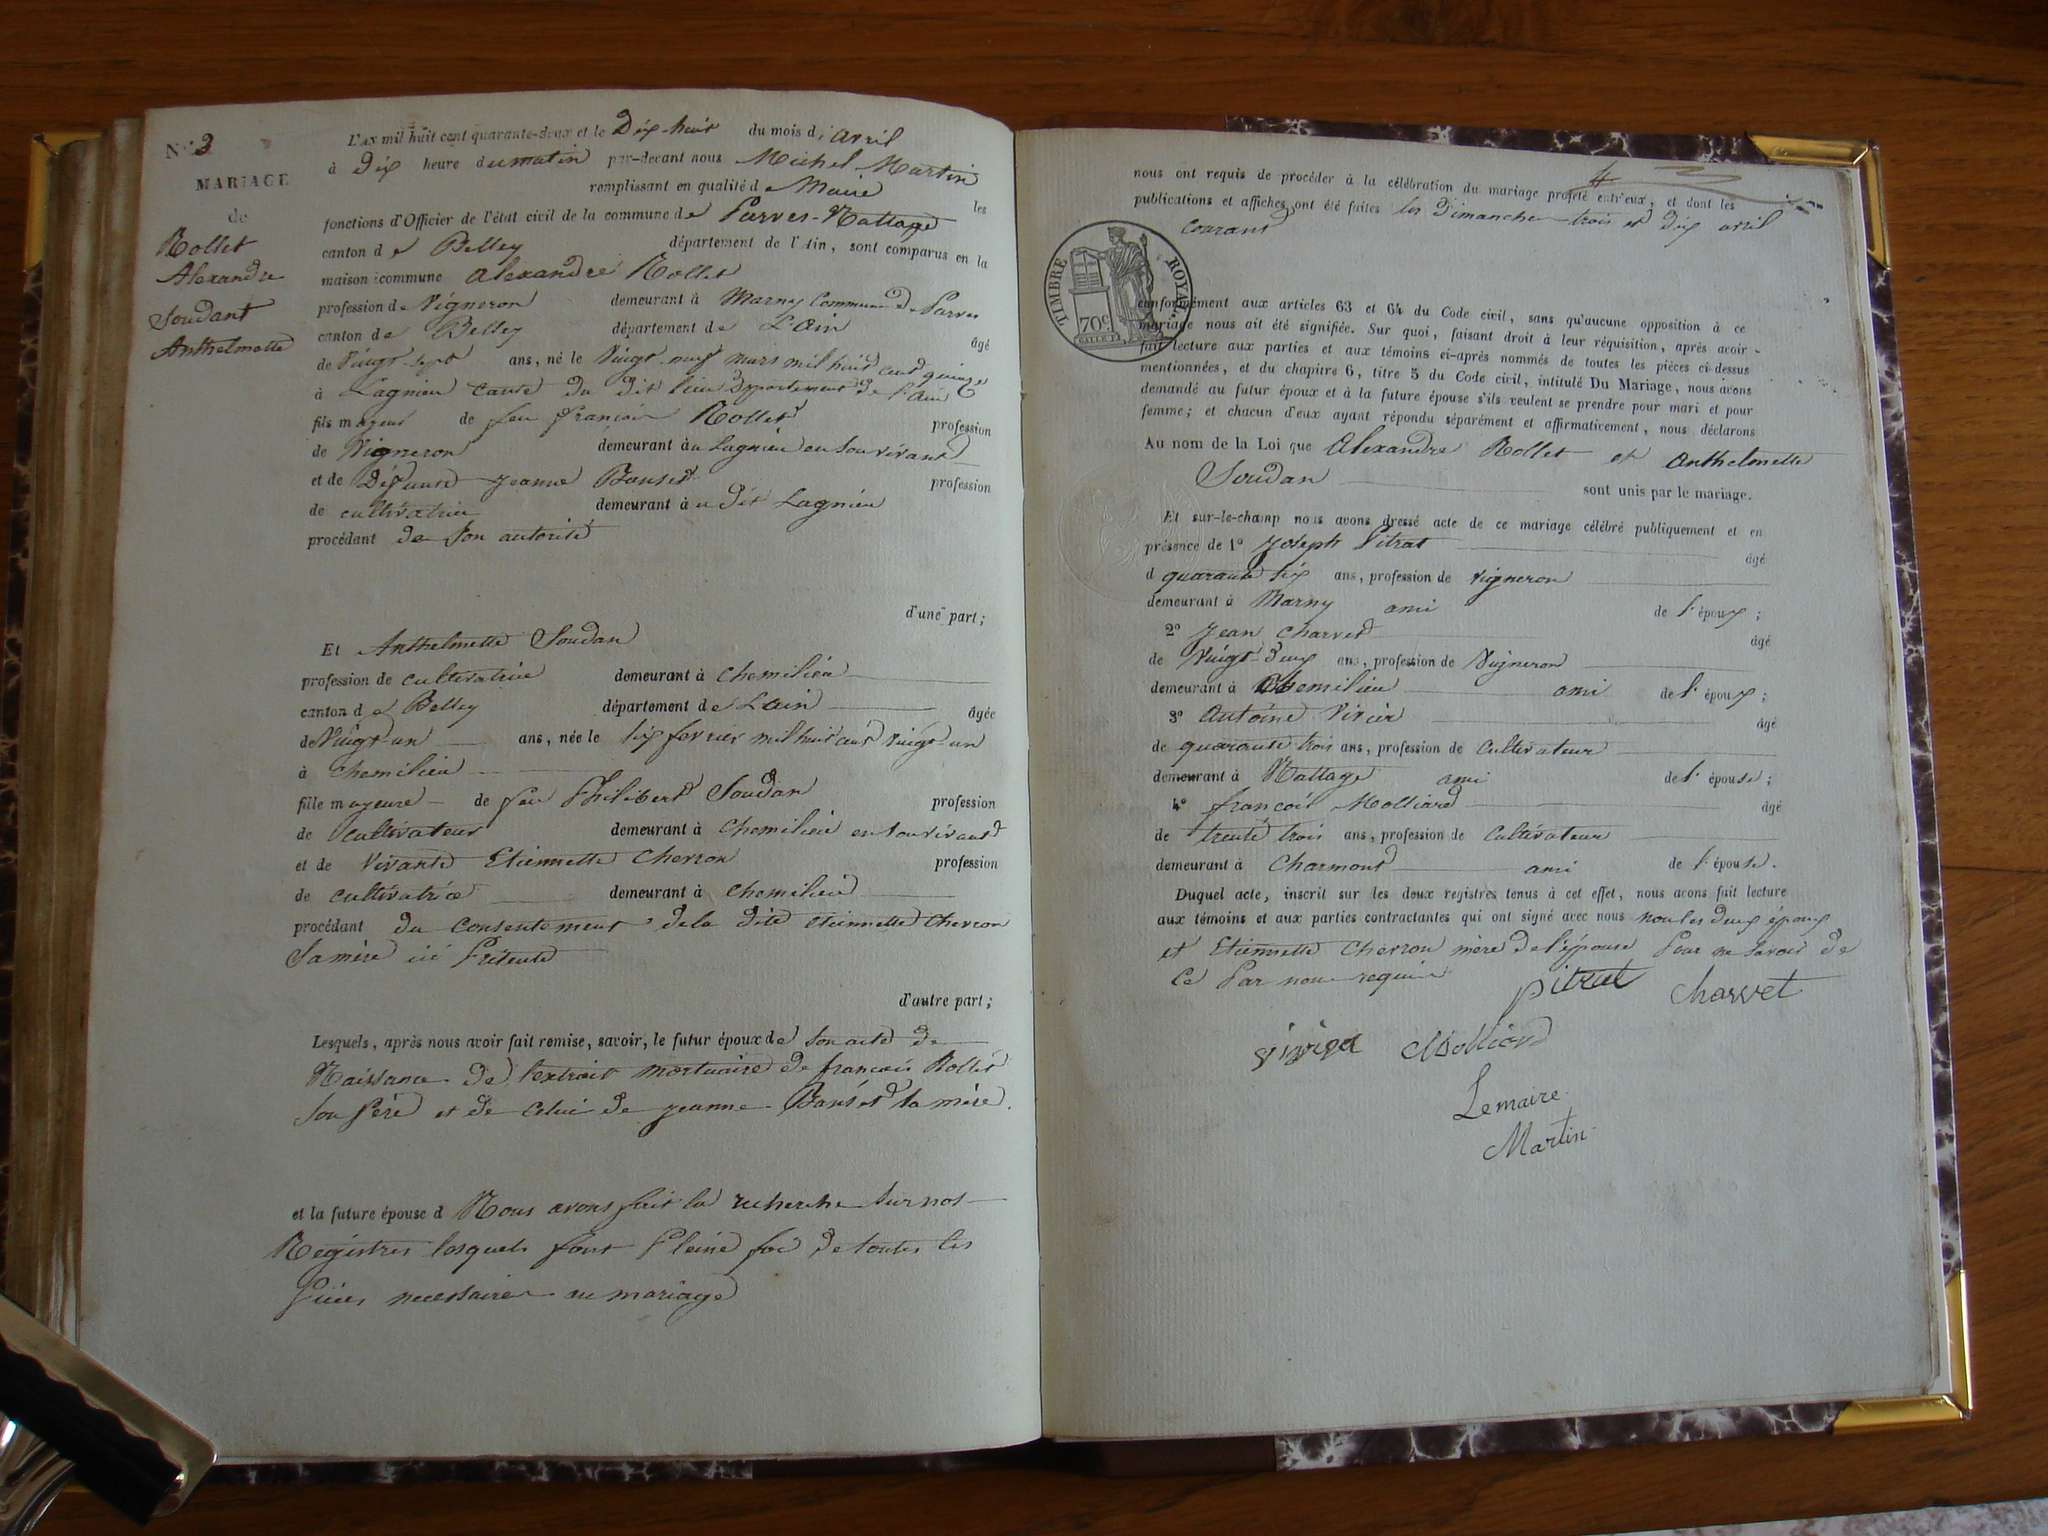 N° 3
MARIAGE
de
Rollet
Alexandre
Soudant
Anthelmette
L'AN mil huit cent quarante-deux et le Dix huit du mois d'avril
à Dix heure du matin par-devant nous Michel Martin
remplissant en qualité de Maire les
fonctions d'Officier de l'état civil de la commune de Parves-Nattage
canton de Belley département de l'Ain, sont comparus en la
maison commune Alexandre Rollet
profession de Vigneron demeurant à Marny Commune de Parves
canton de Belley département de L'ain âgé
de Vingt-sept ans, né le Vingt-neuf mars mil huit cent quinze
à Lagnieu canton du dit lieu Département de l'ain
fils majeur de feu françois Rollet profession
de Vigneron demeurant à Lagnieu en son vivant
et de Défunte Jeanne profession
de cultivatrice demeurant à u dit Lagnieu
procédant de son autorité
d'une part;
Et Anthelmette Soudan
profession de cultivatrice demeurant à chemilieu
canton de Belley département de L'ain âgée
de Vingt-un ans, née le six fevrier mil huit cent vingt-un
à chemilieu
fille majeure de feu Philibert Soudan profession
de cultivateur demeurant à chemilieu en son vivant
et de vivante Etiennette Chevron profession
de cultivatrice demeurant à chemilieu
procédant du consentement de la dite etiennette Chevron
sa mère ici Présente
d'autre part;
Lesquels, après nous avoir fait remise, savoir, le futur époux de son acte de
Naissance de l'extrait mortuaire de francois Rollet
son père et de celui de jeanne sa mère.
et la future épouse d Nous avons fait la recherche sur nos
Registres lesquels font Pleine foi de toutes les
pièces necessaires au mariage
4
nous ont requis de procéder à la célébration du mariage projeté entr'eux, et dont les
publications et affiches ont été faites les Dimanche trois et dix avril
courant
TIMBRE ROYAL
70 c.
conformément aux articles 63 et 64 du Code civil, sans qu'aucune opposition à ce
mariage nous ait été signifiée. Sur quoi, faisant droit à leur réquisition, après avoir
fait lecture aux parties et aux témoins ci-après nommés de toutes les pièces ci-dessus
mentionnées, et du chapitre 6, titre 5 du Code civil, intitulé Du Mariage, nous avons
demandé au futur époux et à la future épouse s'ils veulent se prendre pour mari et pour
femme; et chacun d'eux ayant répondu séparément et affirmativement, nous déclarons
Au nom de la Loi que Alexandre Rollet et Anthelmette
Soudan sont unis par le mariage.
Et sur-le-champ nous avons dressé acte de ce mariage célébré publiquement et en
présence de 1° Joseph Pitrat âgé
d quarante six ans, profession de vigneron
demeurant à Marny ami de l'époux;
2° Jean Charvet âgé
de Vingt-deux ans, profession de Vigneron
demeurant à Chemilieu ami de l'époux;
3° Antoine Vivier âgé
de quarante trois ans, profession de cultivateur
demeurant à Nattage ami de l'épouse;
4° françois Molliard âgé
de trente trois ans, profession de cultivateur
demeurant à Charmont ami de l'épouse.
Duquel acte, inscrit sur les deux registres tenus à cet effet, nous avons fait lecture
aux témoins et aux parties contractantes qui ont signé avec nous non les deux époux
et Etiennette Chevron mère de l'épouse Pour ne savoir de
ce Par nous requis
pitrat charvet
Molliard
Lemaire
Martin